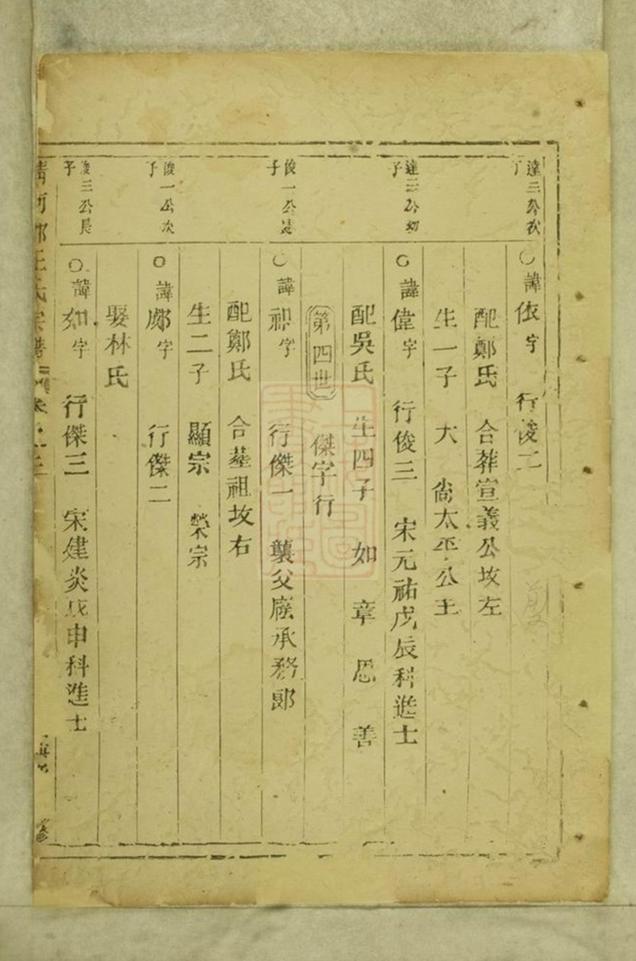 達三公次子
○諱依字 行俊二
配鄭氏 合葬宣義公坟左
生一子 大 尙太平公主
達三公幼子
○諱偉字 行俊三 宋元祐戊辰科進士
配吳氏 生四子 如 章 思 善
第四世
傑字行
俊一公長子
○諱 字 行傑一 襲父廕承務郞
配鄭氏 合塟祖坟右
生二子 顯宗 榮宗
俊一公次子
○諱 字 行傑二
娶林氏
俊三公長子
○諱如字 行傑三 宋建炎戊申科進士
清河郡 氏宗譜